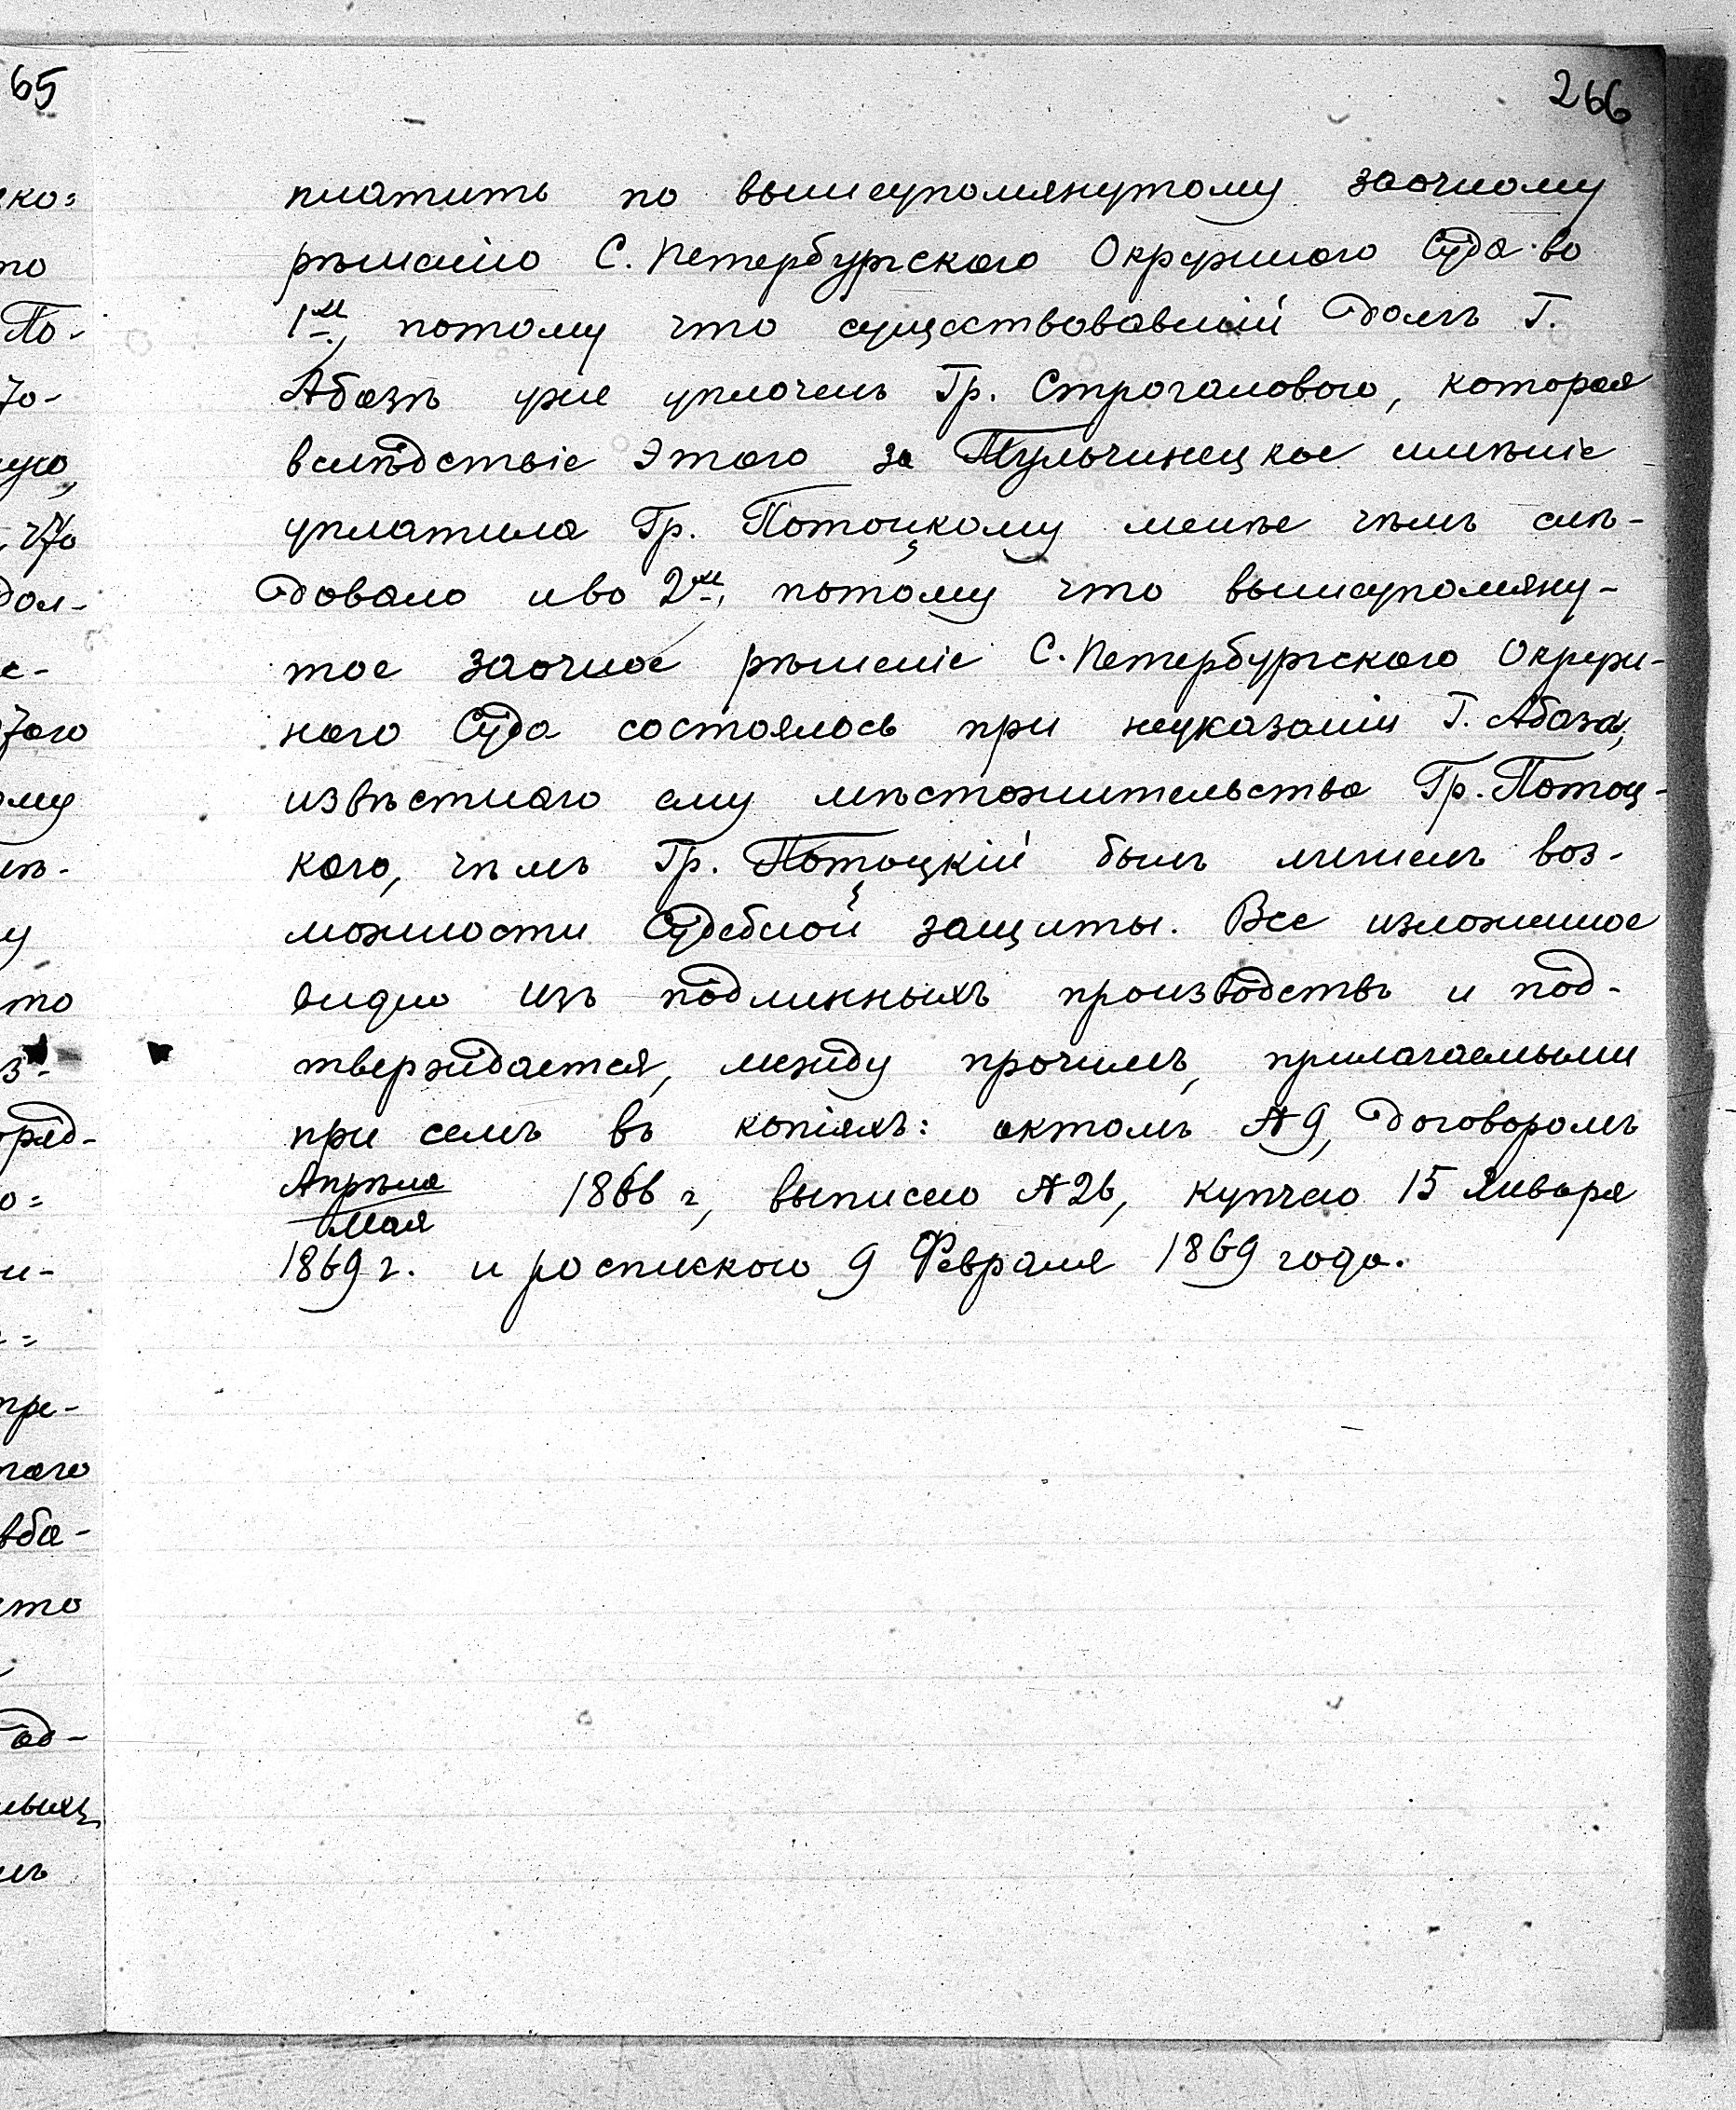 65
266
платить по вышеупомянутому заочному
рѣшенію С. Петербургскаго Окружнаго Суда во
1хъ, потому что существовавшій долгъ Г.
Абазѣ уже уплоченъ Гр. Строгановою, которая
вслѣдствіе этого за Тульчинецкое имѣніе
уплатила Гр. Потоцкому менѣе чѣмъ слѣ-
довало и во 2хъ, потому что вышеупомяну-
тое заочное рѣшеніе С. Петербургскаго Окруж-
наго Суда состоялось при неуказаніи Г. Абаза,
извѣстнаго ему мѣстожительства Гр. Потоц-
каго, чѣмъ Гр. Потоцкій былъ лишенъ воз-
можности судебной защиты. Все изложенное
видно изъ подлинныхъ производствъ и под-
тверждается, между прочимъ, прилагаемыми
при семъ въ копіяхъ: актомъ № 9, договоромъ
Апрѣля
Мая
1866 г, выписью № 26, купчею 15 Января
1869 г. и роспискою 9 Февраля 1869 года.